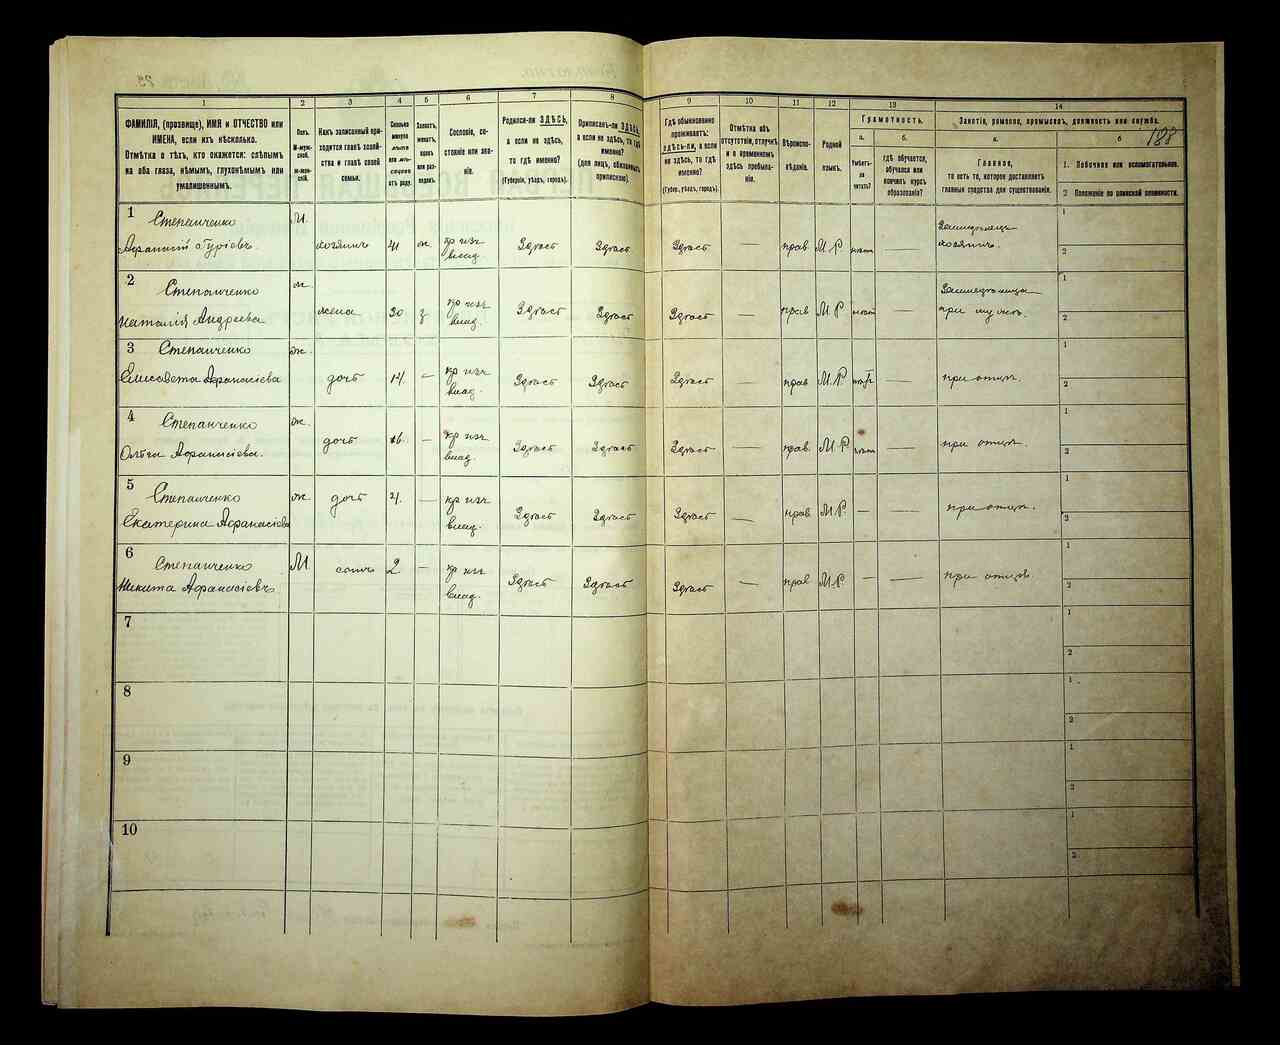 188
1 2 3 4 5 6 7 8 9 10 11 12 13 14
ФАМИЛІЯ, (прозвище), ИМЯ и ОТЧЕСТВО или ИМЕНА, если ихъ нѣсколько.
Отмѣтка о тѣхъ, кто окажется: слѣпымъ на оба глаза, нѣмымъ, глухонѣмымъ или умалишеннымъ.
Полъ.
М-мужской.
ж-женскій.
Какъ записанный приходится главѣ хозяйства и главѣ своей семьи.
Сколько минуло лѣтъ или мѣсяцевъ отъ роду.
Холостъ, женатъ, вдовъ или разведенъ.
Сословіе, состояніе или званіе.
Родился-ли ЗДѢСЬ, а если не здѣсь, то гдѣ именно?
(Губернія, уѣздъ, городъ).
Приписанъ-ли ЗДѢСЬ, а если не здѣсь, то гдѣ именно?
(для лицъ, обязанныхъ припискою).
Гдѣ обыкновенно проживаетъ: ЗДѢСЬ-ЛИ, а если не здѣсь, то гдѣ именно?
(Губер., уѣздъ, городъ).
Отмѣтка объ отсутствіи, отлучкѣ и о временномъ здѣсь пребываніи.
Вѣроисповѣданіе.
Родной языкъ.
Грамотность.
а.
Умѣетъ-ли читать?
б.
гдѣ обучается, обучался или кончилъ курсъ образованія?
Занятіе, ремесло, промыселъ, должность или служба.
а.
Главное,
то есть то, которое доставляетъ главныя средства для существованія.
б
1. Побочное или вспомогательное.
2 Положеніе по воинской повинности.
1 Степанченко М. 1
Афанасій Гурієвъ. хозяинъ 41 ж. кр изъ Здѣсь Здѣсь Здѣсь — прав М.Р. нѣтъ хозяинъ. 2
влад.
2 Степанченко ж. 1
Наталія Андреева жена 30 з кр изъ Здѣсь Здѣсь Здѣсь — прав М.Р. нѣтъ — при мужѣ. 2
влад.
3 Степанченко ж. 1
Елисавета Афанасіева дочь 14. — кр изъ Здѣсь Здѣсь Здѣсь — прав М.Р — при отцѣ. 2
влад.
4 Степанченко ж. 1
Ольга Афанасіева. дочь — кр изъ Здѣсь Здѣсь Здѣсь — прав. М.Р нѣтъ — при отцѣ. 2
влад.
5 Степанченко ж. дочь 4. — кр изъ 1
Екатерина Афанасіева влад. Здѣсь Здѣсь Здѣсь — прав М.Р. — — при отцѣ. 2
6 Степанченко М. сынъ 2 — кр изъ 1
Никита Афанасіевъ влад. Здѣсь Здѣсь Здѣсь — прав М.Р — — при отцѣ 2
7 1
2
8 1
2
9 1
2
10 1
2